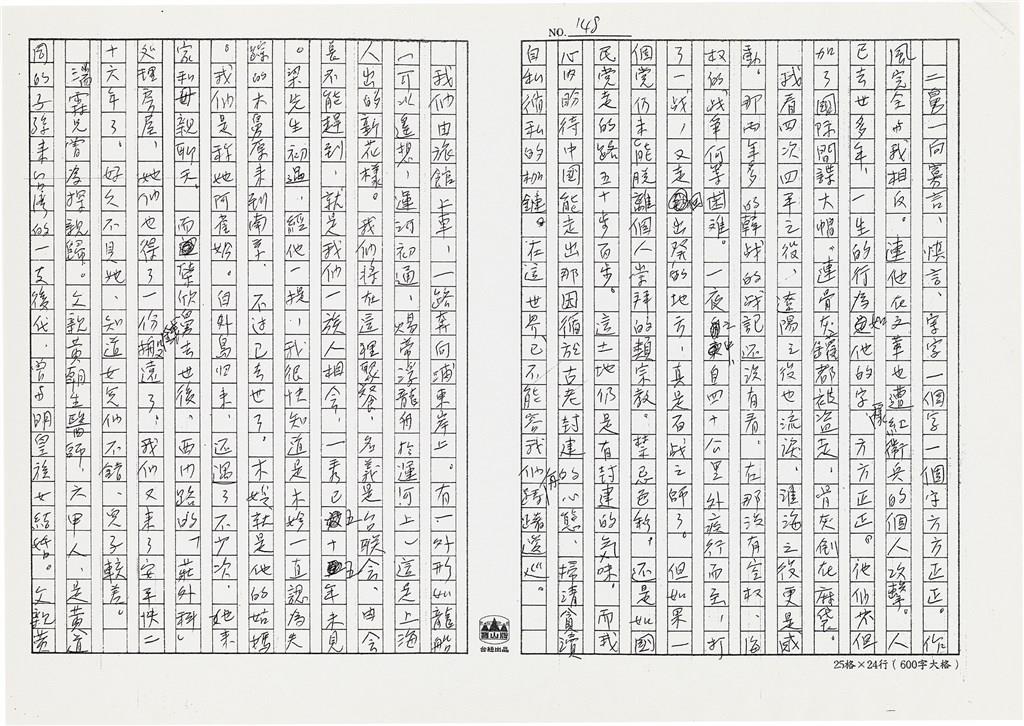 NO. 148
二舅一向寡言、慎言、字字一個字一個字方方正正。作
風完全与我相反。連他在文革也遭紅衛兵的個人攻擊。人
已去世多年，一生的行為如他的字，方方正正。他們不但
加了國際間諜大帽，連骨灰罈都被盜走，骨灰倒在麻袋。
我看四次四平之役，遼陽之役也流淚，淮海之役更是感
動。那兩年多的韓战的战記还沒有看。在那沒有空权、海
权的战争何等困难。一夜之中，自四十公里外疾行而至，打
了一战，又走回出発的地方，真是百战之師了。但如果一
個党仍未能脱離個人崇拜的類宗教。禁忌色彩。还是如國
民党走的路五十步百步。這土地仍是有封建的気味。而我
心內盼待中国能走出那因循於古老封建的心態，掃清貪瀆
自私徇私的枷鎖。在這世界已不能容我們再踌躇逡巡。
我们由旅館上車，一路奔向浦東岸上。有一外形如龍船
（可以遥想，運河初通，煬帝浮龍舟於運河上）這是上海
人出的新花樣。我们將在這裡聚餐。名義是台联会。由会
長不能趕到，就是我们一族人相会，一秀已五十五年未見
。梁先生初遇，經他一提，我很快知道是木姈一直認為失
踪的大舅原来到南京。不过已去世了。木姈就是他的姑媽
。我们是称她阿雀姈。自外島归来，还遇了不少次。她来
家和母親聊天。而榮欣舅去世後，西門路的「莊外科」
处理房屋，她们也得了一份錢搬遠了。我们又来了安平快二
十六年了。好久不見她，知道女兒们不錯，兒子較差。
滿霖兄曾為探親歸。父親黄朝生醫師，六甲人，是黄道
周的子孫来台湾的一支後代，曾与明皇族女結婚。父親黄
台紐出品
25格×24行（600字大格）